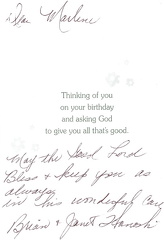 Dear Marlene
Thinking of you
on your birthday
and asking God
to give you all that's good.
May the Good Lord
Bless & keep you as
always
in his wonderful care
Brian & Janet